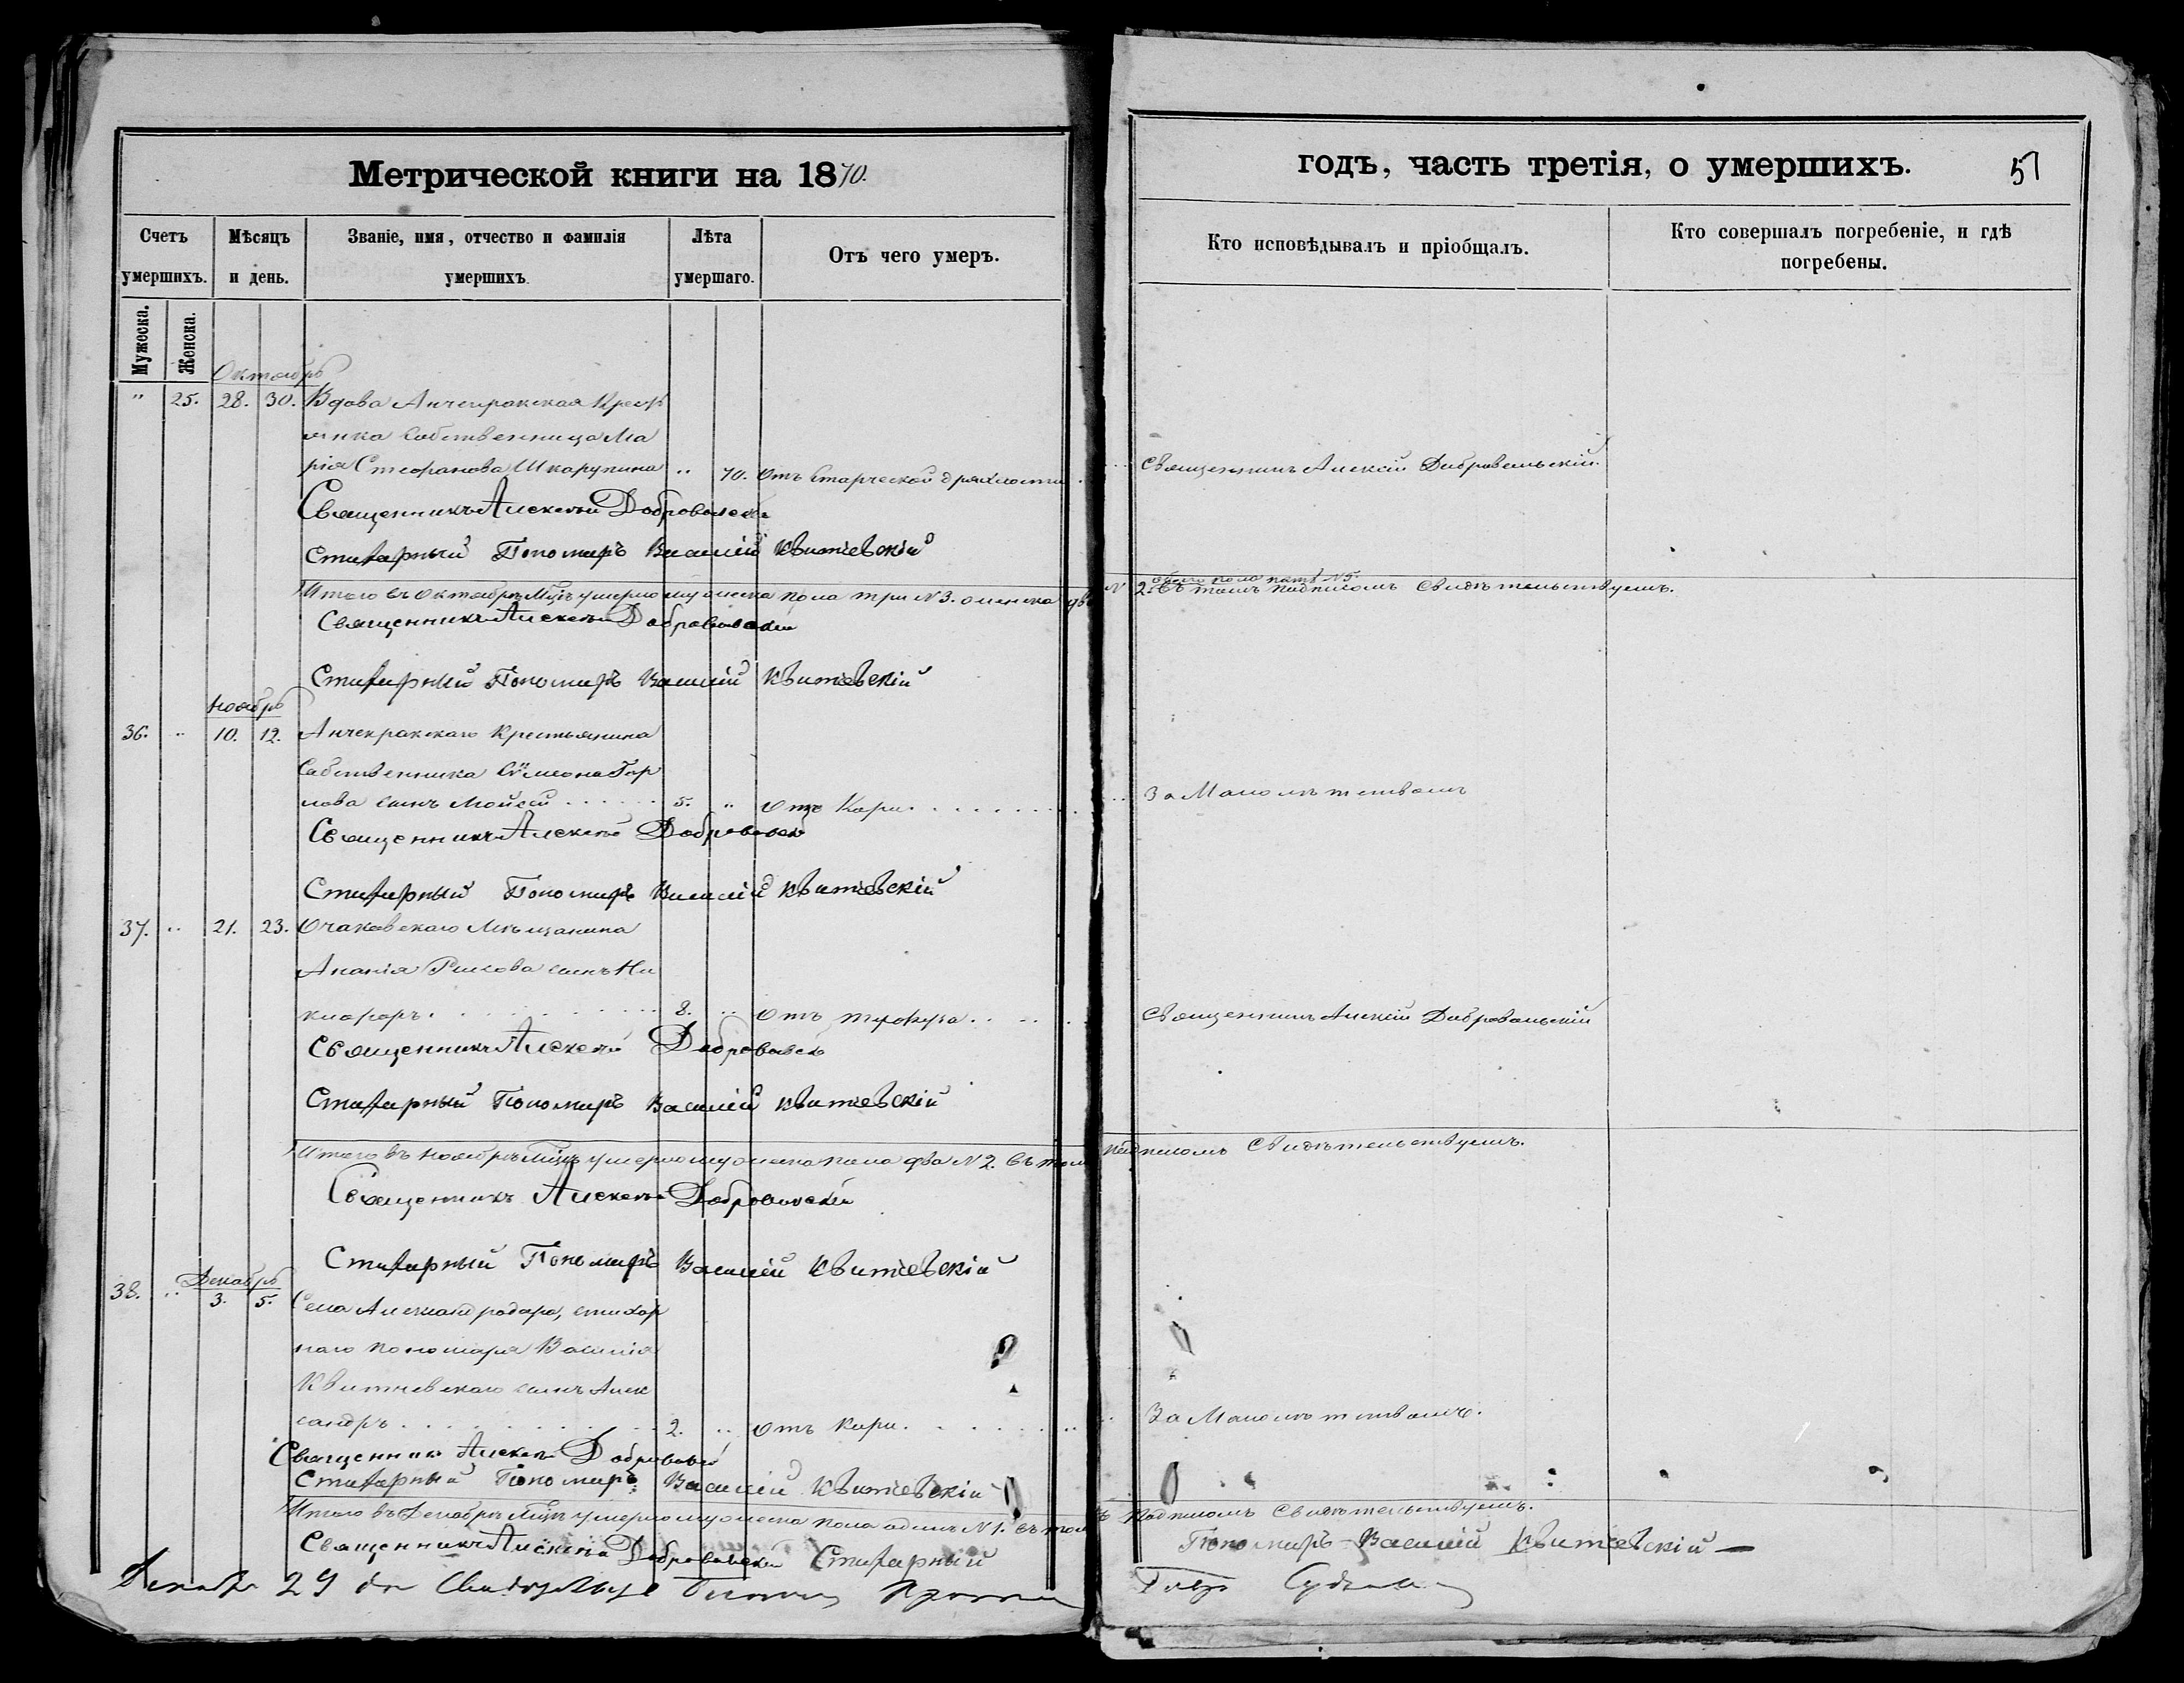 Метрической книги на 1870.
годъ, часть третія, о умершихъ.
51
Счетъ умершихъ.
Мѣсяцъ и день.
Званіе, имя, отчество и фамилія умершихъ.
Лѣта умершаго.
Отъ чего умеръ.
Кто исповѣдывалъ и пріобщалъ.
Кто совершалъ погребеніе, и гдѣ погребены.
Мужеска.
Женска.
Октябрь
" 25. 28. 30. Вдова Анчекракская Крестъ
янка Собственница Ма
рія Стефанова Шкарупина .. 70. Отъ Старческой дряхлости. Священникъ Алексій Добровольскій.
Священникъ Алексѣй Добровольскій
Стихарный Пономарь Василій Квитневскій
обоего пола пять №5.
Итого въ Октябрѣ М-цѣ умерло мужеска пола три №3. женска два № 2. въ томъ подписомъ Свидѣтельствуемъ.
Священникъ Алексѣй Добровольскій
Стихарный Пономарь Василій Квитневскій
Ноябрь
36. .. 10. 12. Анчекракскаго Крестьянина
Собственника Сѵмеона Гор
лова сынъ Мойсей . . . . . 5. .. Отъ Кори. . . . . . За Малолѣтствомъ
Священникъ Алексѣй Добровольск
Стихарный Пономарь Василій Квитневскій
37. .. 21. 23. Очаковскаго Мѣщанина
Ананія Рикова сынъ Ни
кифоръ. . . . . . . . 8. .. Отъ . . . . Священникъ Алексій Добровольскій
Священникъ Алексѣй Добровольск
Стихарный Пономарь Василій Квитневскій
Итого въ Ноябрѣ М-цѣ умерло мужеска пола два № 2. въ томъ подписомъ Свидѣтельствуемъ.
Священникъ Алексѣй Добровольскій
Стихарный Пономарь Василій Квитневскій
Декабрь
38. .. 3. 5. Села Александродара, стихар
наго пономаря Василія
Квитневскаго сынъ Алек
сандръ . . . . . . . . 2. .. Отъ Кори. . . . . . За Малолѣтствомъ.
Священник Алексѣй Добровольскій
Стихарный Пономарь Василій Квитневскій
Итого въ Декабрѣ М-цѣ умерло мужеска пола одинъ № 1. въ томъ подписомъ Свидѣтельствуемъ.
Священникъ Алексѣй Добровольскій Стихарный Пономарь Василій Квитневскій
Декабря 29 дня